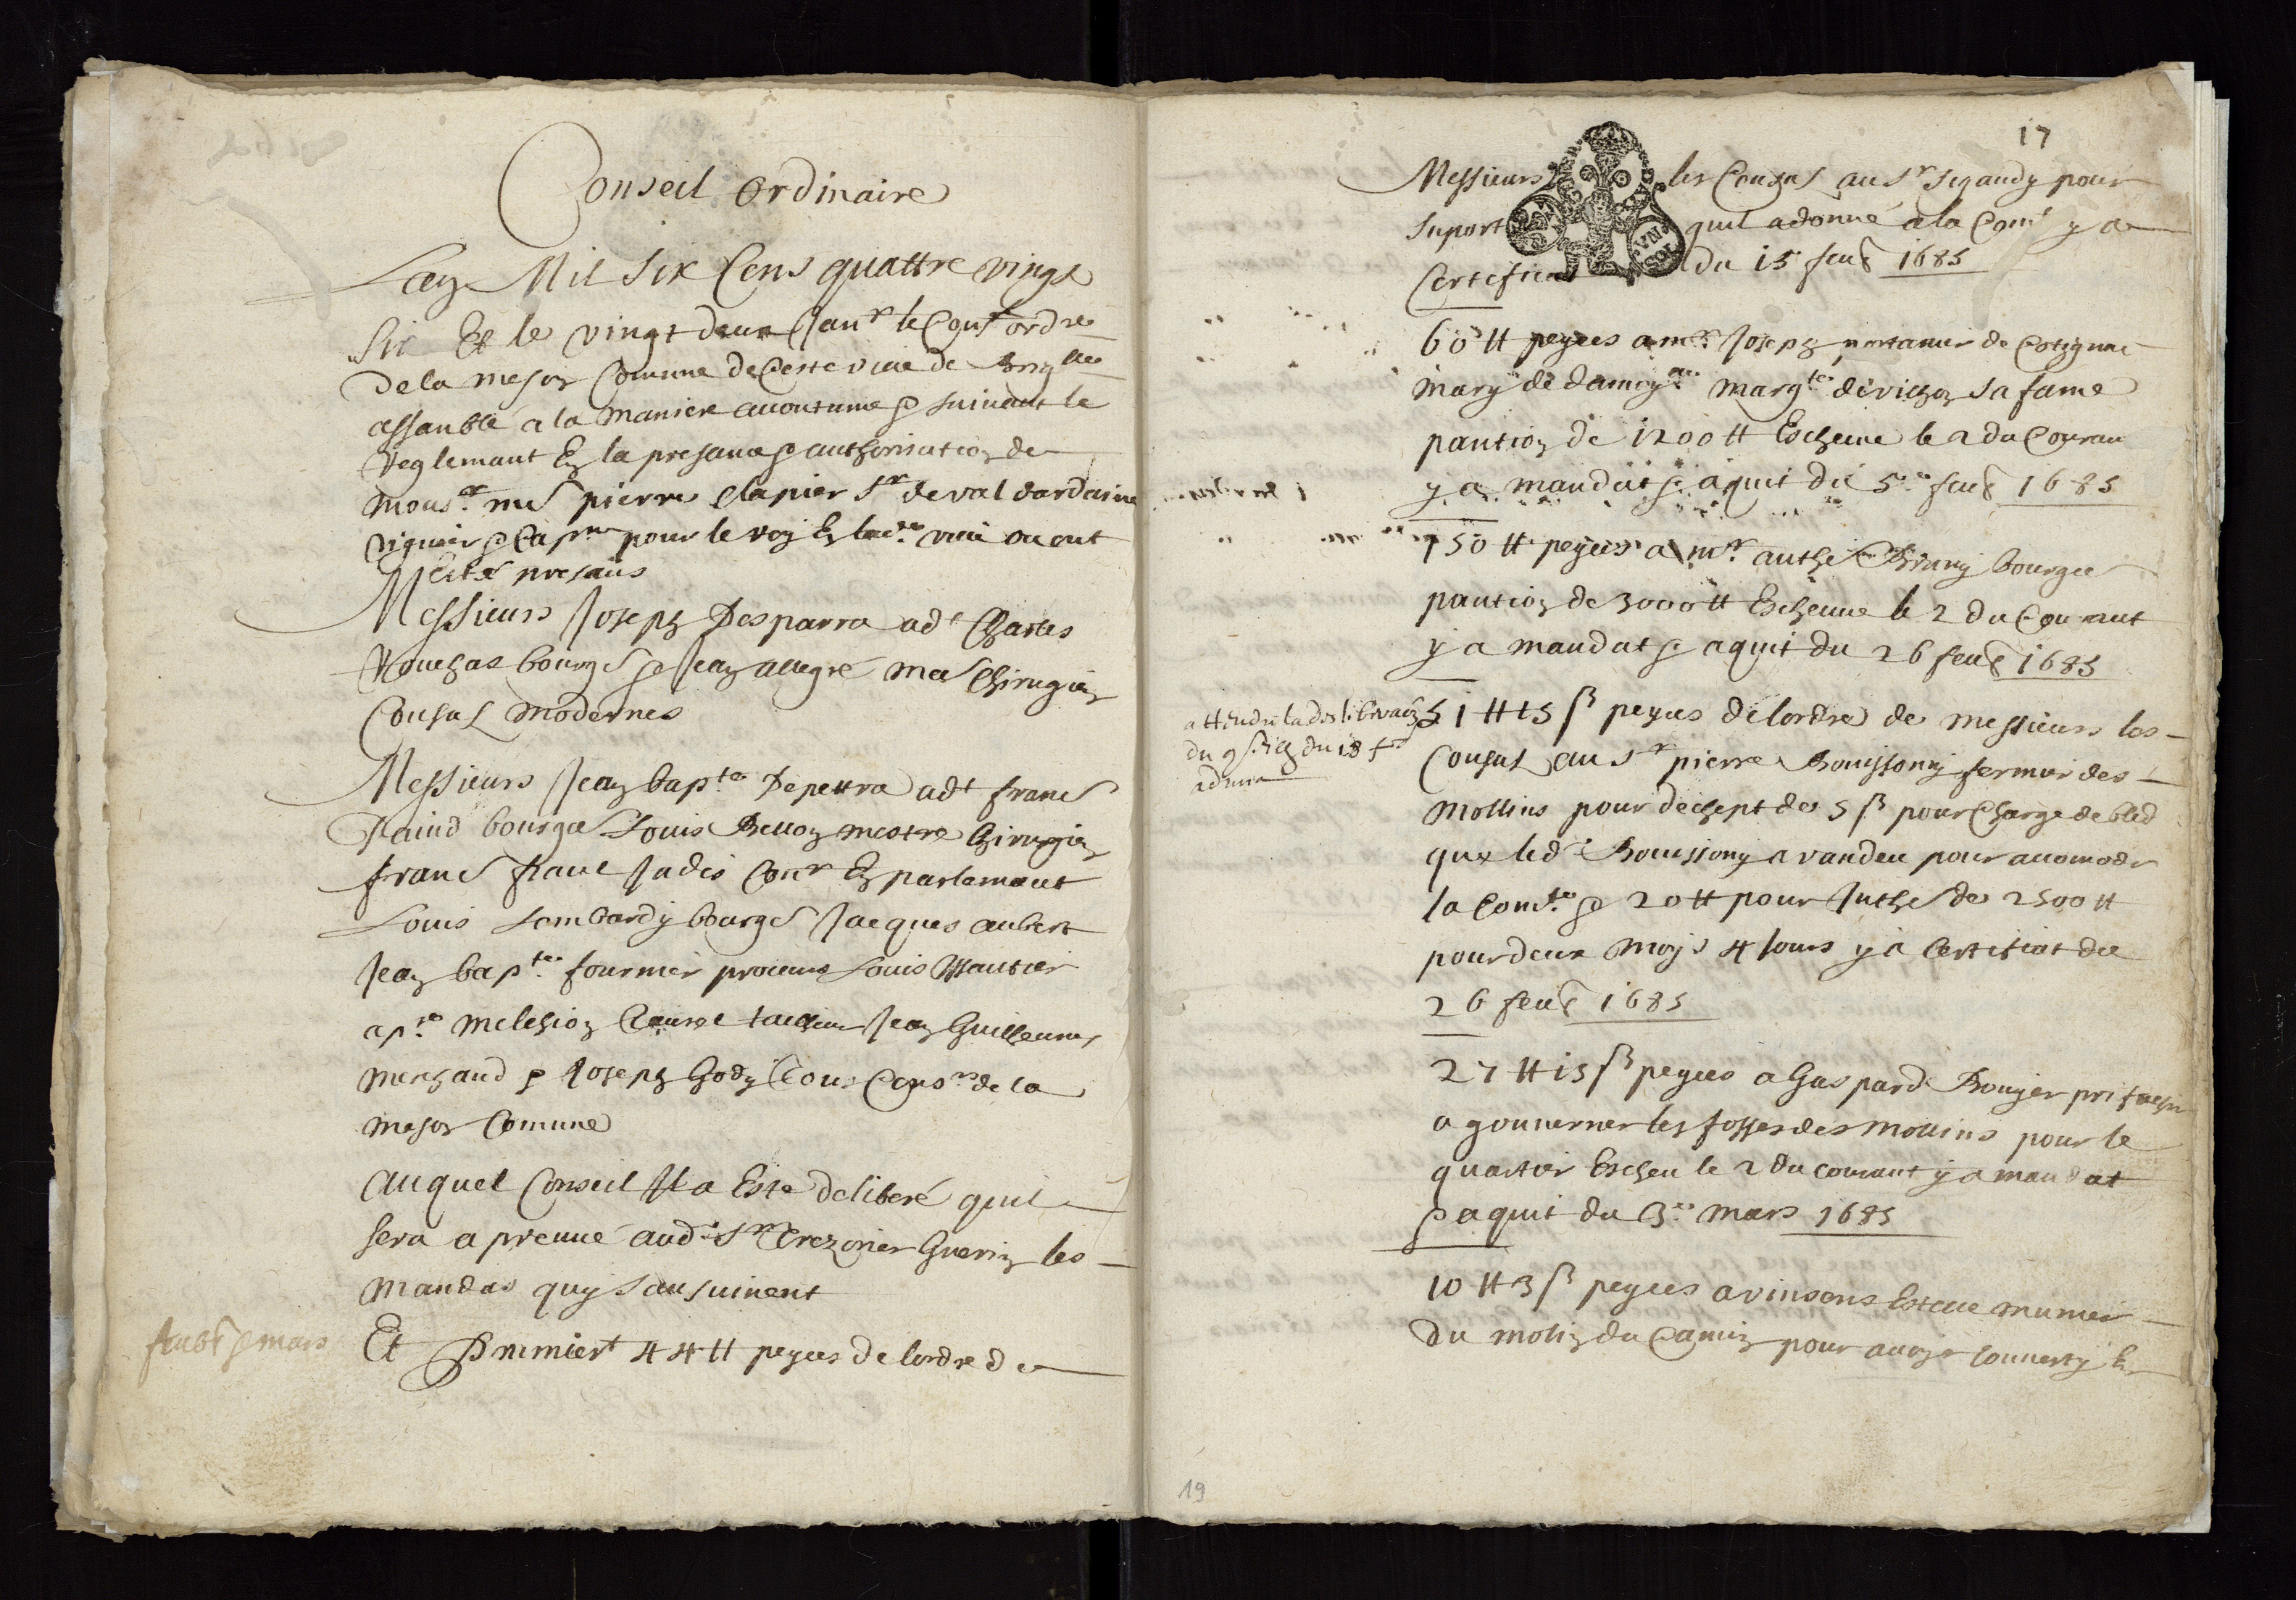 Conseil ordinaire
Lan Mil six Cens quattre vingt
six Et le vingt deux Janr le Consl ordre
de la meson Comune de Ceste ville de
assanblé a la maniere acoutumé & suivant le
reglemant En la presance & authorisation de
monsr me pierre Clapier sr de val dardaine
viguier & Capne pour le roy En lade ville ou ont
Esté presans
Messieurs Joseph Desparra adt Charles
Rouchas bourgs & Jean allegre me Chirugien
Consuls modernes
Messieurs Jean bapte Depettra adt frans
Raind bourgs Louis Bellon mestre Chirugien
frans Jadis Conr En parlemant
Louis Lombardy bourgs Jacques aubert
Jean bapte fournier procureur Louis Wautier
apre melchion Jean Guilheaume
merchand & Joseph Gody tous Consrs de la
meson Comune
Auquel Conseil Il a Este deliberé quil
sera aprenué aud sr Trezorier Guerin les
mandas quy sansuivent
feabr & mars
Et Premiert 44 tt peyees de lordre de
17
Messieurs les Consuls au sr Sigaudy pour
suport quil a donné a la Comt y a
Certificat du 15 feur 1685
60 tt peyees a mre Joseph portanier de Cotignac
mary de damoylle margte de villhon sa fame
pantion de 1200 tt Escheue le 2 du Couran
y a mandat & aquit du 5e feur 1685
150 tt peyees a mr anthe Bruny bourgs
pantion de 3000 tt Escheue le 2 du Courant
y a mandat & aquit du 26 feur 1685
attendre la deslibraon
du 18
51 tt 15 ß peyees de lordre de messieurs les
Consuls au sr pierre Bouissony fermier des
mollins pour dechept de 5 ß pour Charge de bled
que led Bouissony a vandeu pour acomoder
la Comte & 20 tt pour Inthe de 2500 tt
pour deux moys 4 Jours y a Certificat du
26 feur 1685
27 tt 15 ß peyees a Gaspard Bouyer prifachier
a gouverner les fosses des mollins pour le
quartier Escheu le 2 du courant y a mandat
& aquit du 3e mars 1685
10 tt 3 ß peyees a vinsens Esteve munier
du molin du Camin pour avoyr converty En
19